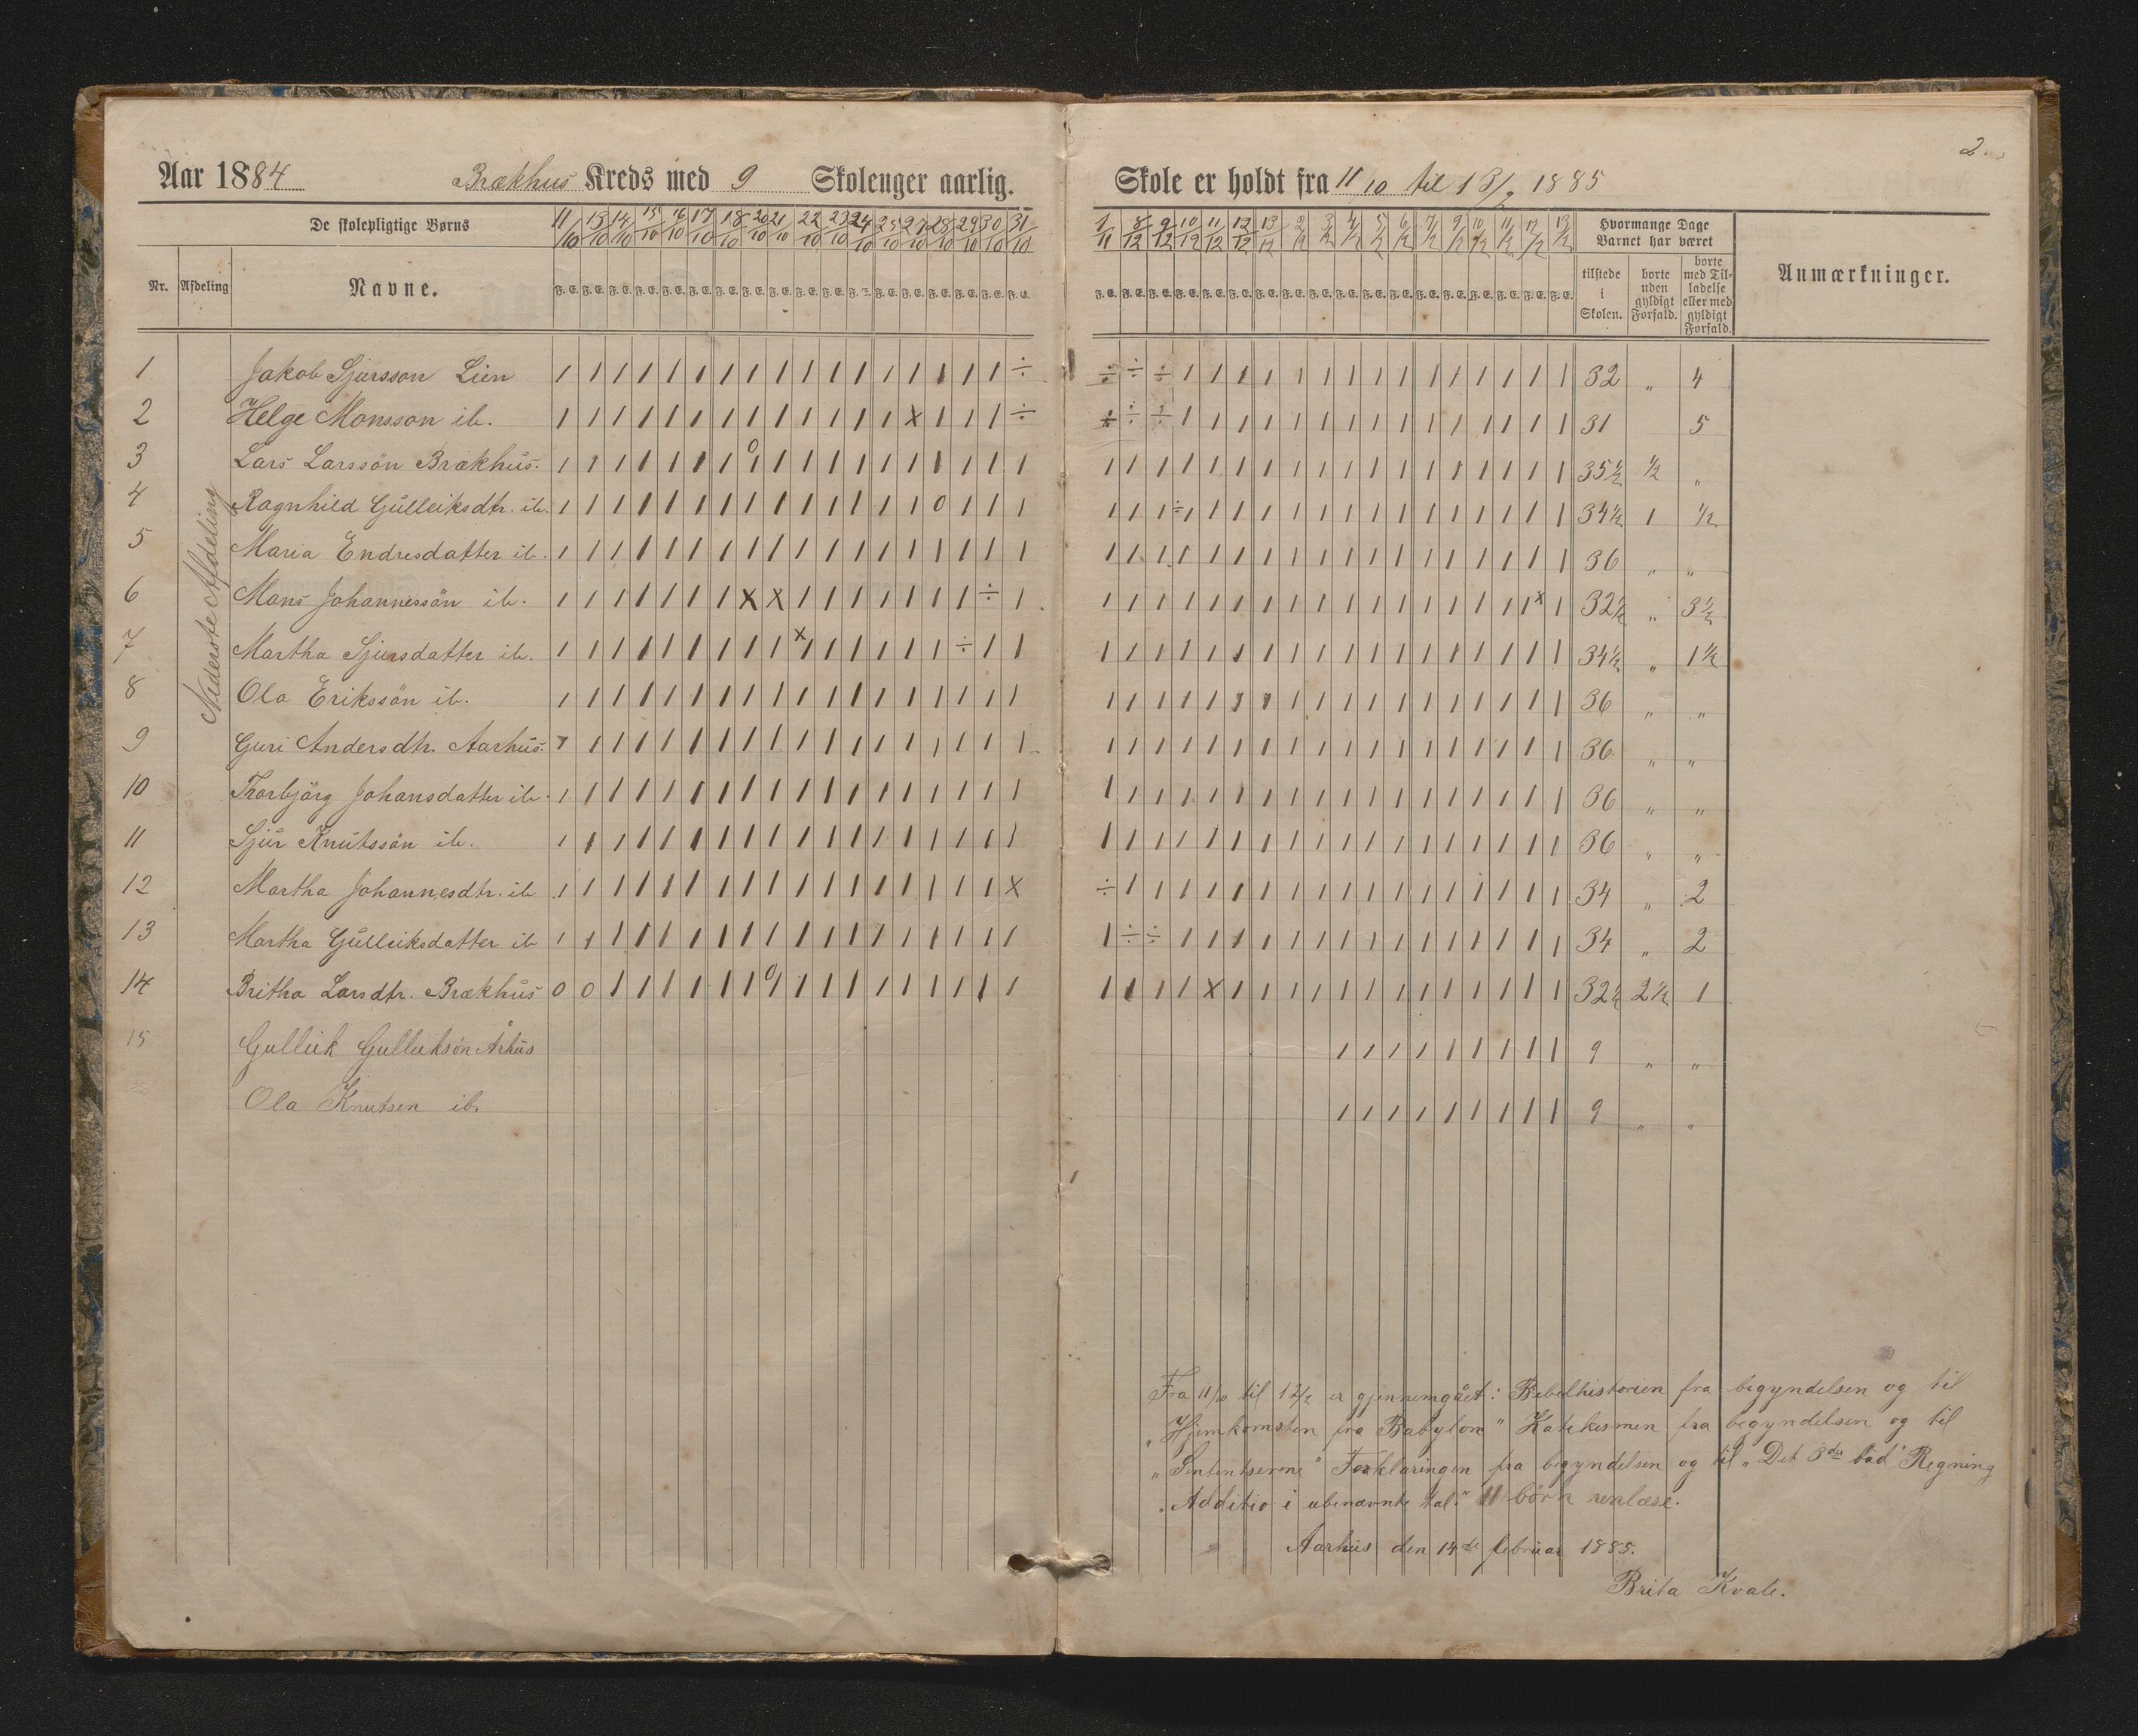 2.
Aar 1884 Brækhus Kreds med 9 Skolenger aarlig. Skole er holdt fra 11/10 til 13/2 1885
De skolepligtige Børns 11/10 13/10 14/10 15/10 16/10 17/10 18/10 20/10 21/10 22/10 23/10 24/10 25/10 27/10 28/10 29/10 30/10 31/10 1/11 8/12 9/12 10/12 11/12 12/12 13/12 2/2 3/2 4/2 5/2 6/2 7/2 9/2 10/2 11/2 12/2 13/2 Hvormange Dage Barnet har været
Nr. Afdeling Navne. tilstede i Skolen. borte uden gyldigt Forfald. borte med Tilladelse eller med gyldigt Forfald. Anmærkninger.
Nederste Afdeling
1 Jakob Sjursson Lien 1 1 1 1 1 1 1 1 1 1 1 1 1 1 1 1 1 ÷ ÷ ÷ ÷ 1 1 1 1 1 1 1 1 1 1 1 1 1 1 1 32 " 4
2 Helge Monsson ib. 1 1 1 1 1 1 1 1 1 1 1 1 1 x 1 1 1 ÷ ÷ ÷ ÷ 1 1 1 1 1 1 1 1 1 1 1 1 1 1 1 31 5
3 Lars Larssön Brækhus. 1 1 1 1 1 1 1 0/1 1 1 1 1 1 1 1 1 1 1 1 1 1 1 1 1 1 1 1 1 1 1 1 1 1 1 1 1 35½ ½ "
4 Ragnhild Gulleiksdtr. ib. 1 1 1 1 1 1 1 1 1 1 1 1 1 1 0 1 1 1 1 1 1 ÷/1 1 1 1 1 1 1 1 1 1 1 1 1 1 1 34½ 1 ½
5 Maria Endresdatter ib. 1 1 1 1 1 1 1 1 1 1 1 1 1 1 1 1 1 1 1 1 1 1 1 1 1 1 1 1 1 1 1 1 1 1 1 1 36 " "
6 Mons Johannessön ib. 1 1 1 1 1 1 1 x x 1 1 1 1 1 1 1 ÷ 1 1 1 1 1 1 1 1 1 1 1 1 1 1 1 1 1 1/x 1 32½ " 3½
7 Martha Sjursdatter ib. 1 1 1 1 1 1 1 1 1 x/1 1 1 1 1 1 ÷ 1 1 1 1 1 1 1 1 1 1 1 1 1 1 1 1 1 1 1 1 34½ " 1½
8 Ola Erikssön ib. 1 1 1 1 1 1 1 1 1 1 1 1 1 1 1 1 1 1 1 1 1 1 1 1 1 1 1 1 1 1 1 1 1 1 1 1 36 " "
9 Guri Andersdtr. Aarhus. 1 1 1 1 1 1 1 1 1 1 1 1 1 1 1 1 1 1 1 1 1 1 1 1 1 1 1 1 1 1 1 1 1 1 1 1 36 " "
10 Thorbjörg Johansdatter ib. 1 1 1 1 1 1 1 1 1 1 1 1 1 1 1 1 1 1 1 1 1 1 1 1 1 1 1 1 1 1 1 1 1 1 1 1 36 " "
11 Sjur Knutssön ib. 1 1 1 1 1 1 1 1 1 1 1 1 1 1 1 1 1 1 1 1 1 1 1 1 1 1 1 1 1 1 1 1 1 1 1 1 36 " "
12 Martha Johannesdtr. ib 1 1 1 1 1 1 1 1 1 1 1 1 1 1 1 1 1 x ÷ 1 1 1 1 1 1 1 1 1 1 1 1 1 1 1 1 1 34 " 2
13 Martha Gulleiksdatter ib 1 1 1 1 1 1 1 1 1 1 1 1 1 1 1 1 1 1 1 ÷ ÷ 1 1 1 1 1 1 1 1 1 1 1 1 1 1 1 34 " 2
14 Britha Larsdtr. Brækhus 0 0 1 1 1 1 1 1 0/1 1 1 1 1 1 1 1 1 1 1 1 1 1 x 1 1 1 1 1 1 1 1 1 1 1 1 1 32½ 2½ 1
15 Gulleik Gulleiksön Århus 1 1 1 1 1 1 1 1 1 9 " "
Ola Knutsen ib. 1 1 1 1 1 1 1 1 1 9 " "
Fra 11/10 til 13/2 er gjennemgået: Bibelhistorien fra begyndelsen og til
„Hjemkomsten fra Babylon" Katekismen fra begyndelsen og til
„Sententserne" Forklaringen fra begyndelsen og til „Det 3die bud" Regning
„Additio i ubenævnte tal." 11 börn renlæse.
Aarhus den 14de februar 1885.
Brita Kvale.